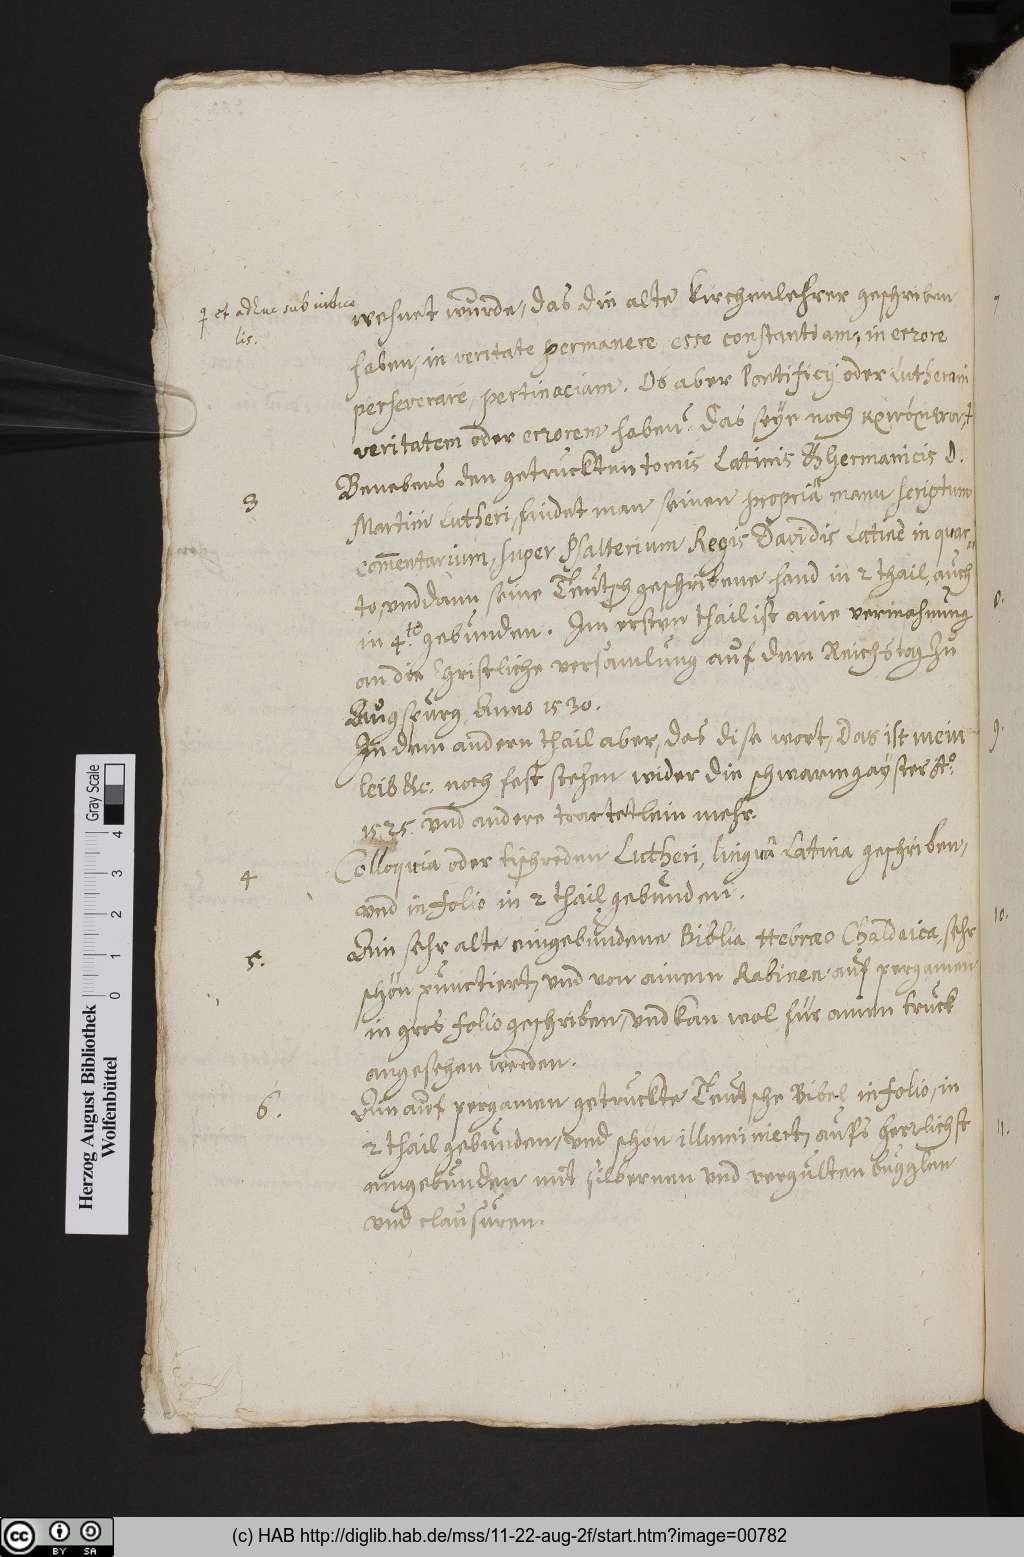 ☿ et adhuc sub iudice
lis.
wehnet würde, das die alte kirchenlehrer geschriben
haben, in veritate permanere esse constantiam, in errore
perseverare, pertinaciam. Ob aber Pontificij oder Lutherani
veritatem oder errorem haben? Das seye noch
3 Benebens den getruckten tomis Latinis & Ghermanicis D.
Martini Lutheri, findet man seinen propriâ manu scriptum
com̃entarium, super Psalterium Regis Davidis Latinè in quar=
to, vnd dann seine Teutsch geschribene hand in 2 thail, auch
in 4.to gebunden. Im ersten thail ist aine vermahnung
an die Christliche versamlung auf dem Reichstag zu
Augspurg Anno 1530.
In dem andern thail aber, das dise wort, Das ist mein
leib &c. noch fest stehen wider die schwarmgayster Ao.
1525. vnd andere tractetlein mehr.
4 Colloquia oder tischreden Lutheri, linguâ Latina geschriben,
vnd in folio in 2 thail gebunden.
5. Ain sehr alte eingebundene Biblia Hebræo Chaldaica, sehr
schön punctiert, vnd von ainem Rabinen auf pergamen
in gros folio geschriben, vnd kan wol für ainen truck
angesehen werden.
6. Ain auf pergamen getruckte Teutsche Bibel in folio, in
2 thail gebunden, vnd schön illuminiert, aufs herrlichst
aingebunden mit silbernen vnd vergulten bugglen
vnd clausuren.
8.
9.
10.
11.
Herzog August Bibliothek
Wolfenbüttel
Gray Scale
0 1 2 3 4
cc BY SA
(c) HAB http://diglib.hab.de/mss/11-22-aug-2f/start.htm?image=00782